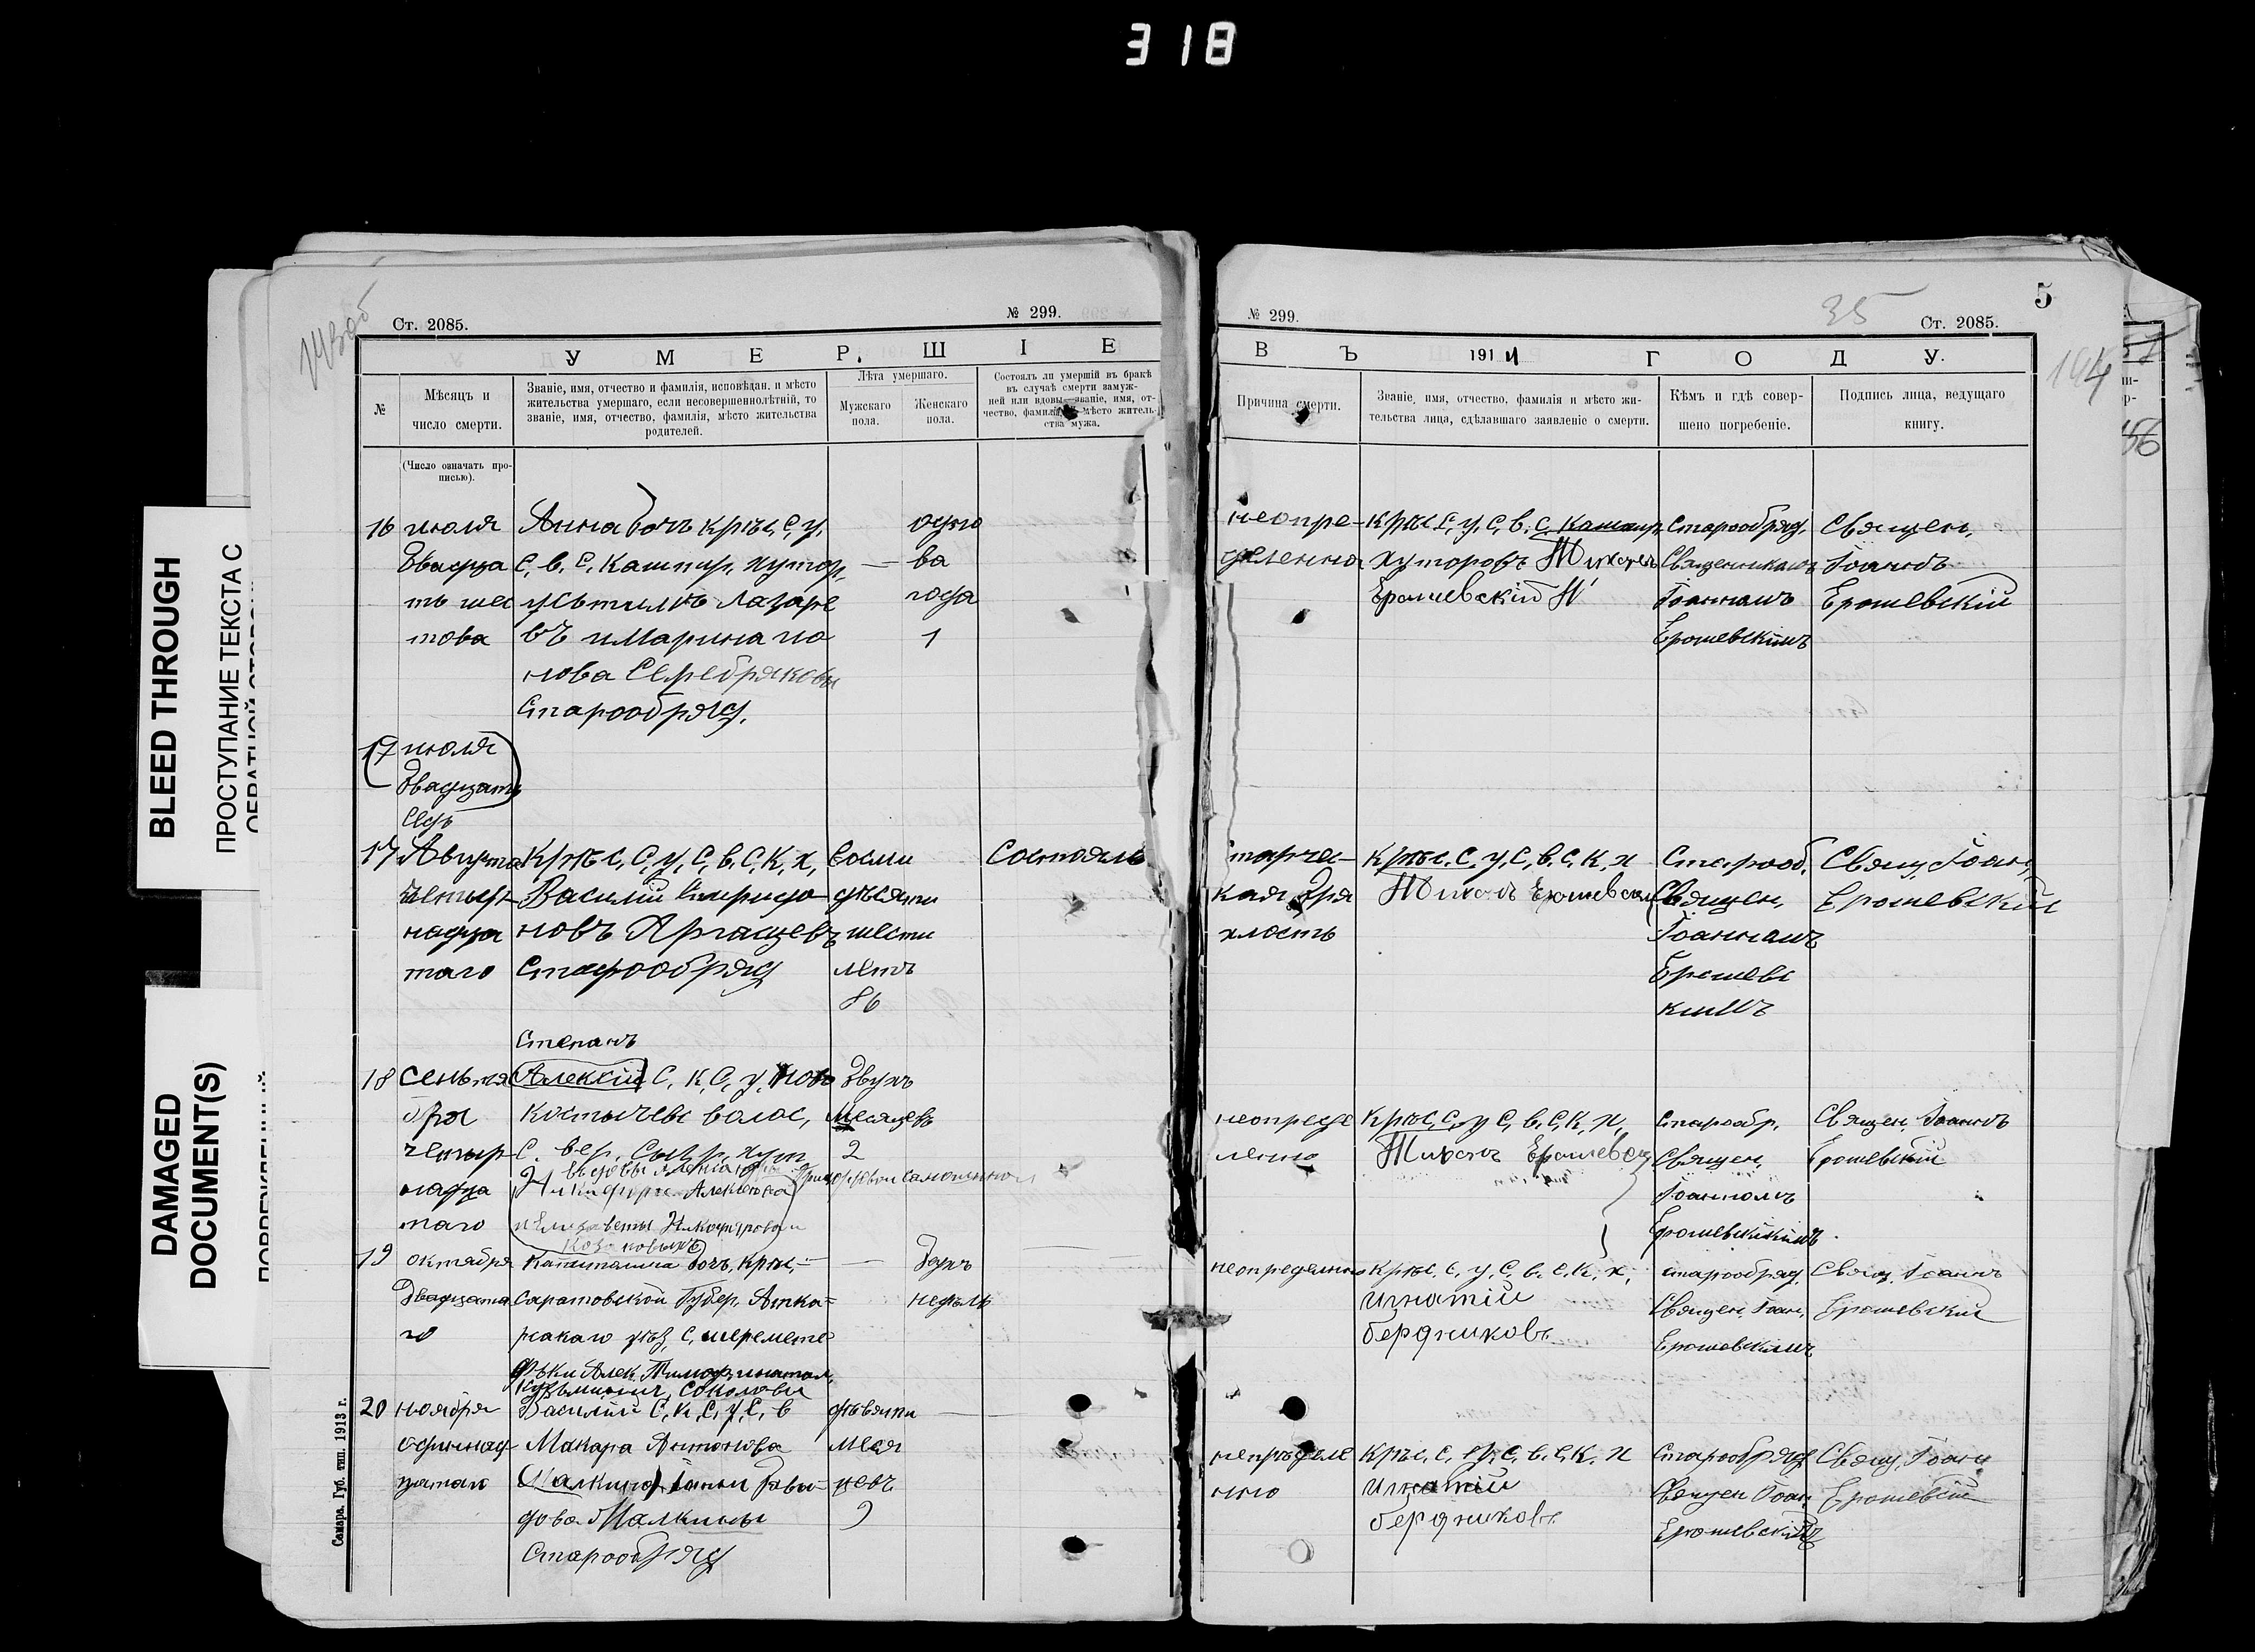 318
BLEED THROUGH
ПРОСТУПАНИЕ ТЕКСТА С
DAMAGED
DOCUMENT(S)
Ст. 2085.
№ 299.
У М Е Р Ш I Е
№
Мѣсяцъ и
число смерти.
(Число означать про-
писью).
Званіе, имя, отчество и фамилія, исповѣдан. и мѣсто
жительства умершаго, если несовершеннолѣтній, то
званіе, имя, отчество, фамилія, мѣсто жительства
родителей.
Лѣта умершаго.
Мужскаго
пола.
Женскаго
пола.
Состоялъ ли умершій въ бракѣ
въ случаѣ смерти замуж-
ней или вдовы—званіе, имя, от-
чество, фамилія, мѣсто житель-
ства мужа.
16
июля
Двадца
ть шес
това
Анна дочь крѣс. С. у.
С. в. С. Кашпир. хутор.
Лазаре
въ и Марина
нова Серебряковы
Старообряд.
одно
ва
года
1
17 июля
Двадцать
Седь
17 Августа
четыр
надца
таго
Крѣс. С. у. С. в. С. К. х.
Василій
новъ
Старообряд
восми
десяти
шести
летъ
86
Состоялъ
Степанъ
18 Сентя
бря
четыр
надца
таго
Алексій С. К. С. у. Ново
Костычевс волос,
С. вер. Сызр. хут
Никифора Алексеева
и Елизаветы
Козаковыхъ
Двухъ
Месяцевъ
2
19 октября
Двадцата
го
Капитолина дочь, крѣс.
Саратовской Губер. Аткар-
скаго уѣз. С. шеремете
Соколовы
Двухъ
недѣль
20 ноября
одиннад
цатаго
Василій С. К. С. у. С. в
Макара Антонова
Малкина Анны Давы-
дова Малкины
Старообряд
девяти
меся
цевъ
9
Самара. Губ. тип. 1913 г.
№ 299.
35
Ст. 2085.
5
194
В Ъ 1914 Г О Д У.
Причина смерти.
Званіе, имя, отчество, фамилія и мѣсто жи-
тельства лица, сдѣлавшаго заявленіе о смерти.
Кѣмъ и гдѣ совер-
шено погребеніе.
Подпись лица, ведущаго
книгу.
неопре-
деленно
крѣс. С. у. С. в. С. Кашпир.
хуторовъ Тихонъ
Ерошевскій
Старообряд.
Священникомъ
Іоанномъ
Ерошевскимъ
Священ.
Іоаннъ
Ерошевскій
старчес-
кая дря
хлость
крѣс. С. у. С. в. С. К. х
Тихонъ Ерошевски
Старооб.
Священ.
Іоанномъ
Ерошевс
кимъ
Свящ. Іоан.
Ерошевскій
неопреде
ленно
Крѣс. С. у С. в. С. К. х.
Тихонъ Ерошевск
Старообр.
Священ.
Іоанномъ
Ерошевскимъ
Священ. Іоаннъ
Ерошевскій
неопределенно
крѣс. С. у. С. в. С. К. х.
Игнатій
бердниковъ
старообряд.
Священ. Іоан.
Ерошевскимъ
Свящ. Іоаннъ
Ерошевскій
непрѣделе
нно
Крѣс. С. у. С. в. С. К. х
Игнатій
бердниковъ
Старообряд
Священ Іоан
Ерошевскимъ
Свящ. Іоанн
Ерошевскій
56